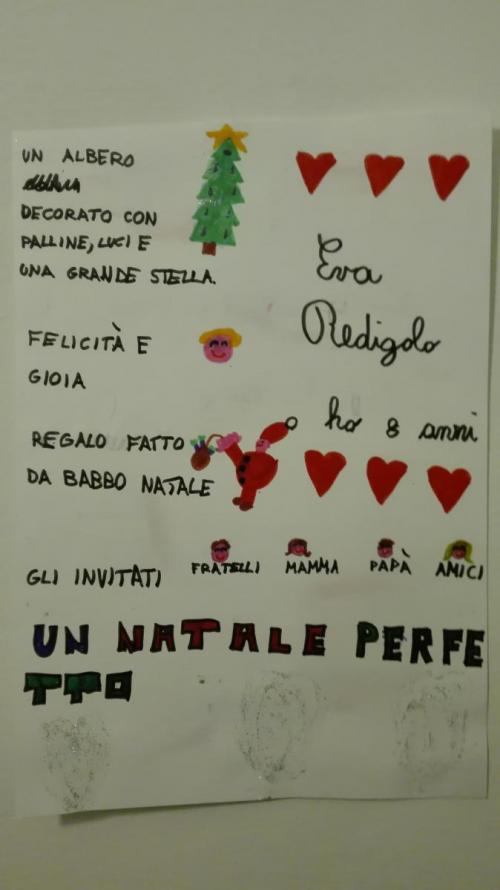 UN ALBERO
DECORATO CON
PALLINE, LUCI E
UNA GRANDE STELLA.
Eva
Redigolo
ho 8 anni
FELICITÀ E
GIOIA
REGALO FATTO
DA BABBO NATALE
GLI INVITATI
FRATELLI MAMMA PAPÀ AMICI
UN NATALE PERFE
TTO